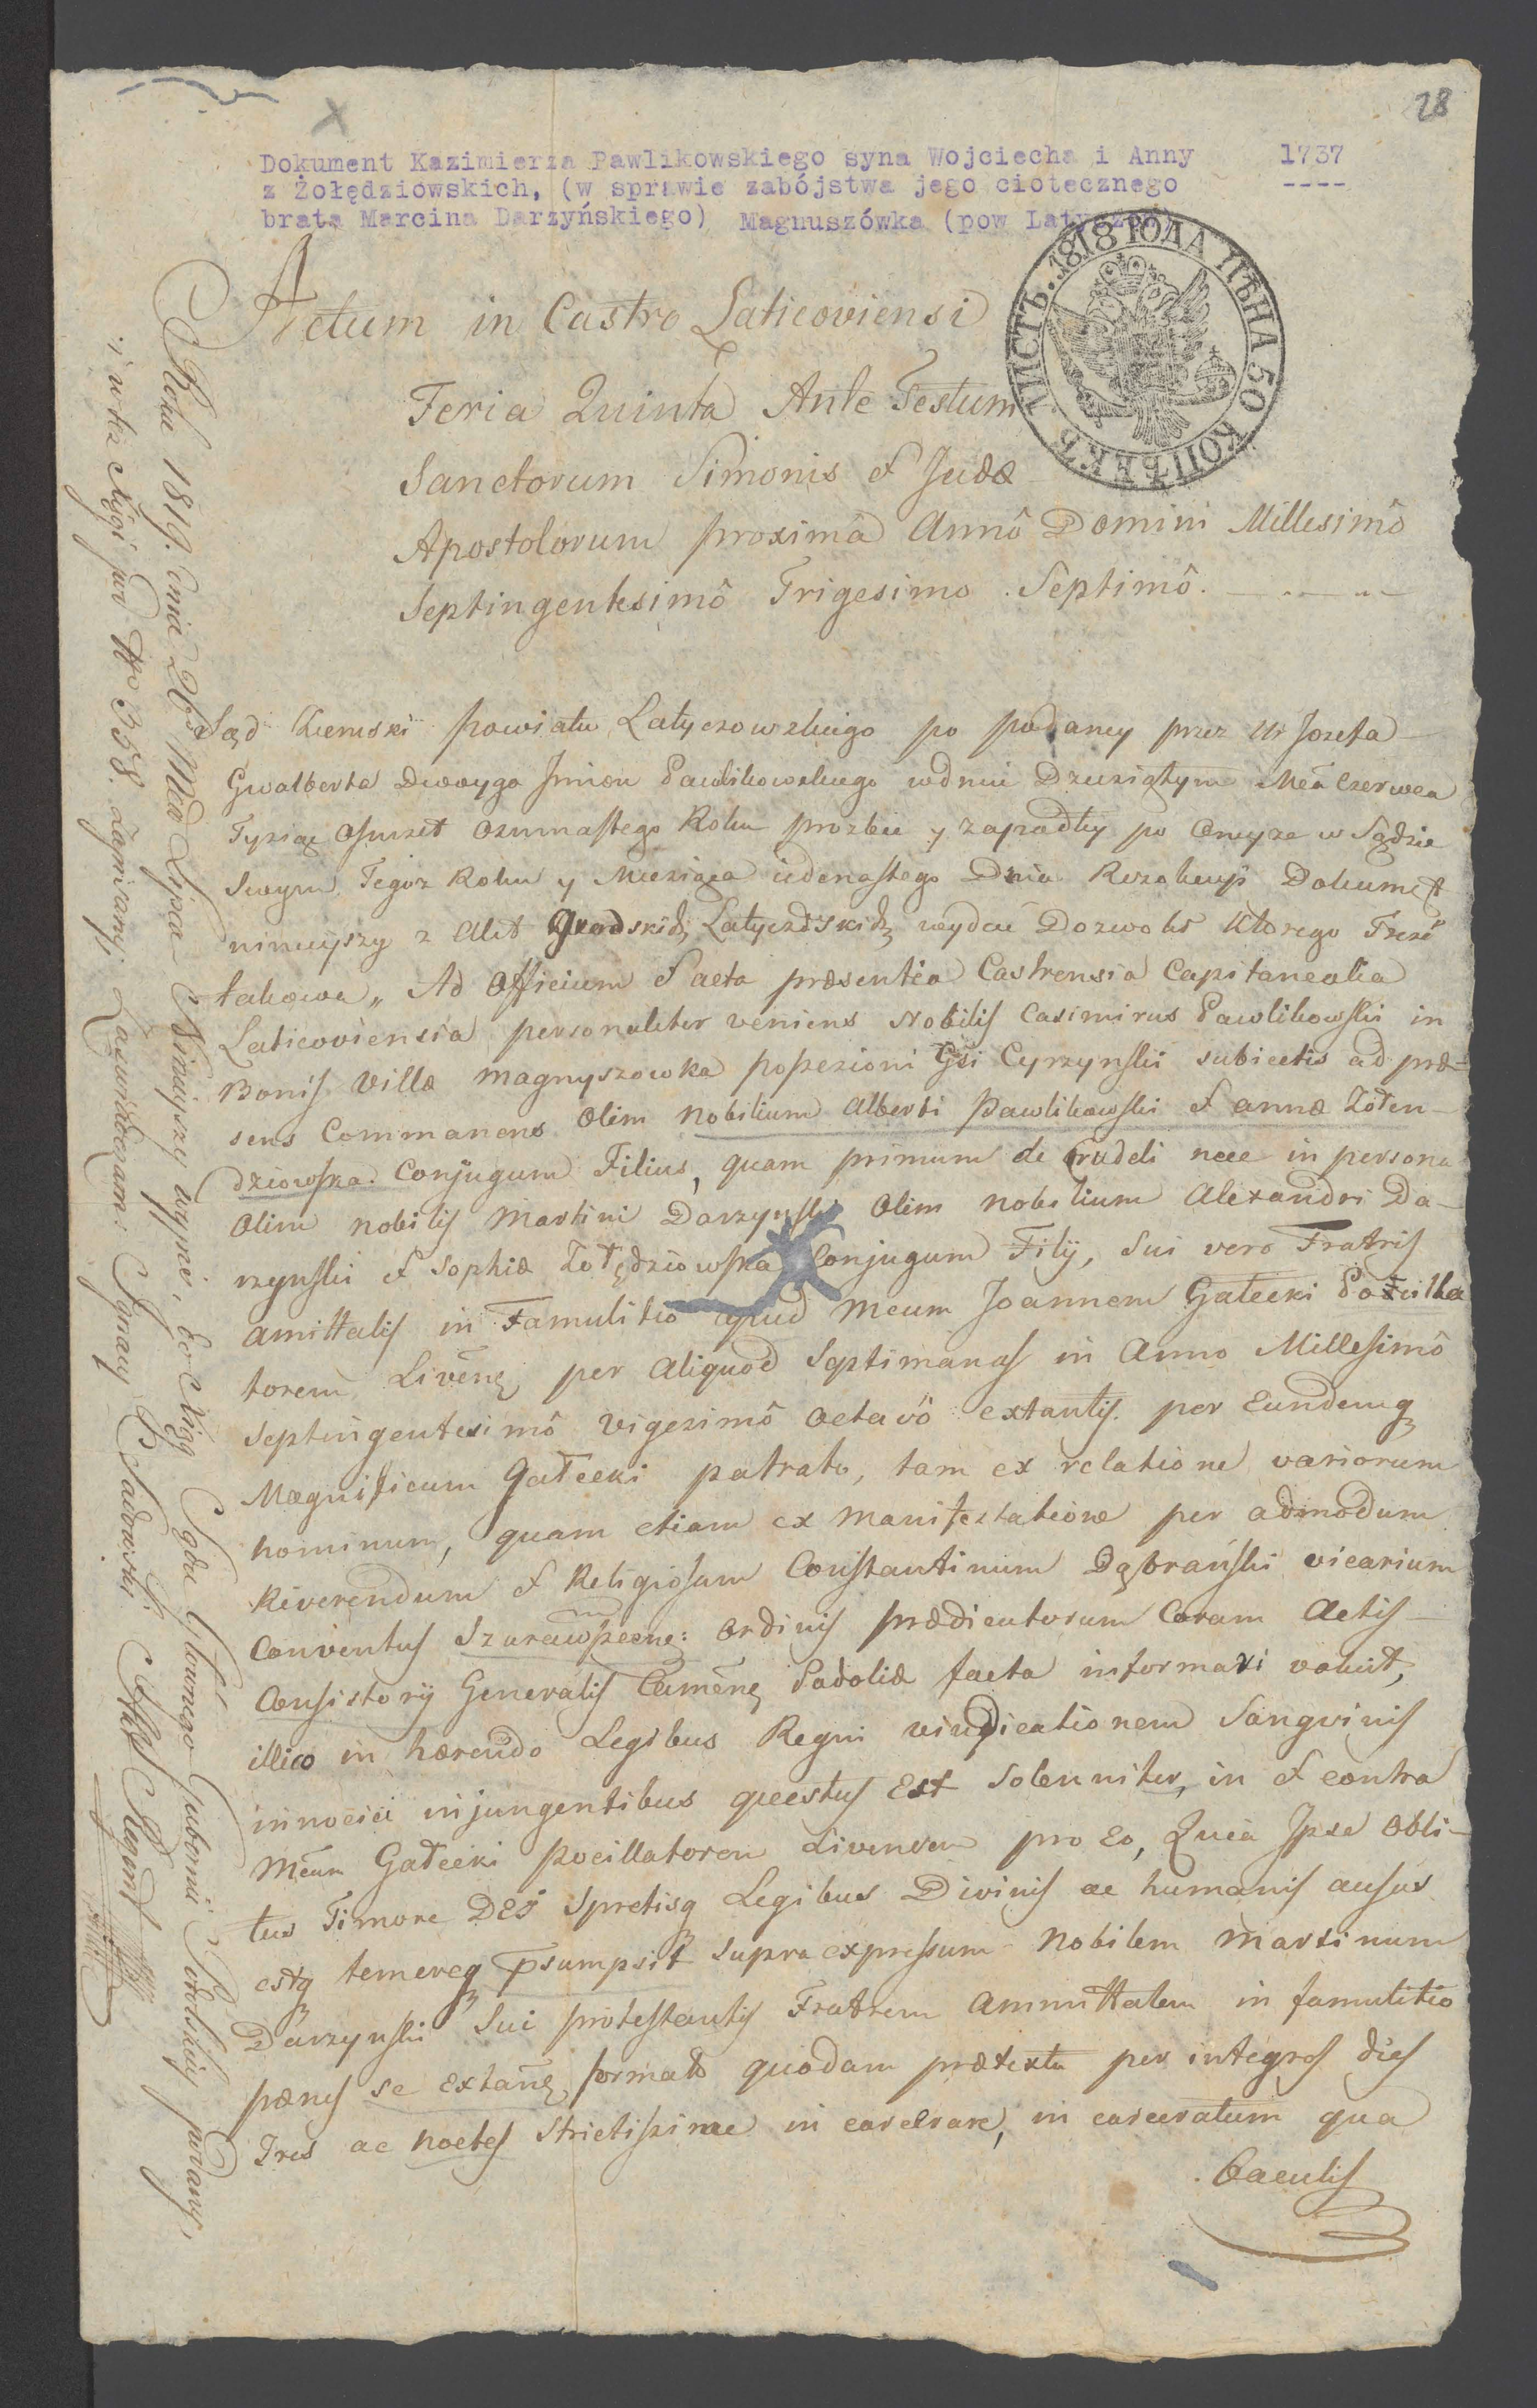 28
Dokument Kazimierza Pawlikowskiego syna Wojciecha i Anny 1737
z Żołędziowskich, (w sprawie zabójstwa jego ciotecznego
brata Marcina Darzyńskiego) Magnuszówka (pow Latycz
ЛИСТЪ. 1818 ГОДА ЦѢНА 50 КОПѢЕКЪ
Actum in Castro Laticoviensi
Feria Quinta Ante Festum
Sanctorum Simonis et Judæ
Apostolorum proximâ Annô Domini Millesimô
Septingentesimô Trigesimo Septimô.
Sąd Ziemski Powiatu Latyczowskiego po podaney przez Ur Jozefa
Gwalberta Dwoyga Jmion Pawlikowskiego w dniu Dziesiątym Mca Czerwca
Tysiąc Osmset Osmnastego Roku prozbie y zapadłey po oney ze w Sądzie
Swym Tegoż Roku y Miesiąca iedenastego Dnia Dokument
ninieyszy z Akt Grodskich Latyczowskich wydać Dozwolił Ktorego Treść
takowa „ Ad Officium et acta præsentia Castrensia Capitanealia
Laticoviensia personaliter veniens Nobilis Casimirus Pawlikowski in
Bonis Villæ Magnyszowka possesioni Gsi Cyrzynski subiectis ad præ-
sens Commanens Olim Nobilium Alberti Pawlikowski et annæ Żołen-
dziowska Conjugum Filius, quam primum de crudeli nece in persona
Olim nobilis Martini Darzynski Olim nobilium Alexandri Da-
rzynski et Sophiæ Żołędziowska Conjugum Filij, Sui vero Fratris
amittalis in Famulitio apud Mcum Joannem Gałecki Pocilla
torem Livenę per Aliquod Septimanas in Anno Millesimô
Septingentesimô Vigesimô Octavô extantis per Eundemq
Magnificum Gałecki patrato, tam ex relatione variorum
hominum, quam etiam ex manifestatione per admodum
Reverendum et Religiosum Constantinum Dąbrański vicarium
Conventus Ordinis prædicatorum Coram Actis
Consistorij Generalis Camene Podoliæ facta informari valuit,
illico in hærendo Legibus Regni vindicationem Sangvinis
innocui injungentibus questus Est Solenniter, in et contra
Mcum Gałecki Pocillatorem Livensem pro Eo, Quia Jpse Obli-
tus Timore DEI Spretisq Legibus Divinis ac humanis ausus
estq temereq psumpsit supra expressum Nobilem Martinum
Darzynski Sui protestantis Fratrem Ammittalem in famulitio
pænes se Extanę formato quodam prætextu per integros dies
Tres ac noctes Strictissime in carcerare, in carceratum qua
Baculis
Roku 1819. Dnia 26 Mca Lipca Ninieyszy wypis, do Xiąg Sądu Głównego Gubernii Podolskiey podany,
i w też Xięgi pod No 358. Zapisany. Zaświadczam: Ignacy Sadowski Regent